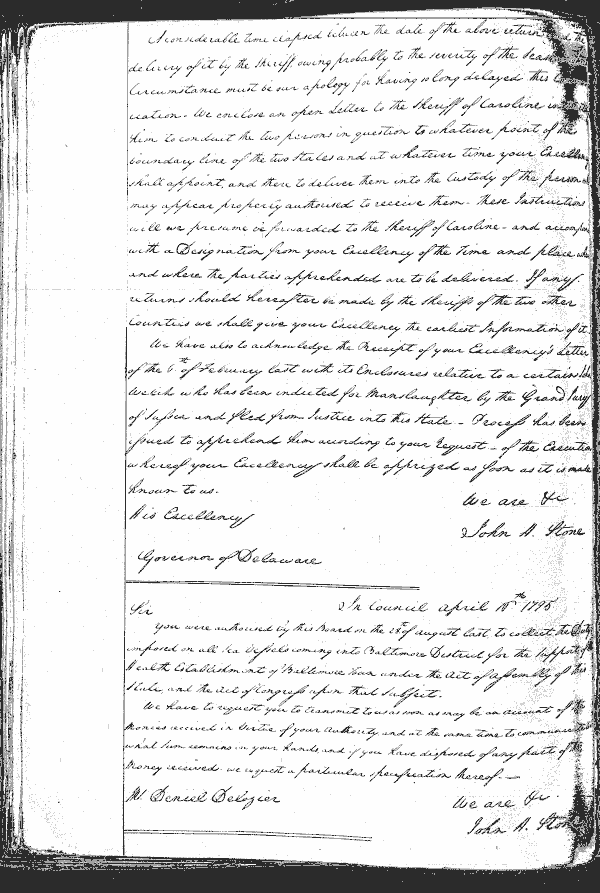 A considerable time elapsed between the date of the above return and the
delivery of it by the Sheriff owing probably to the severity of the Season
Circumstance must be our apology for having so long delayed this
cation. We enclose an open Letter to the Sheriff of Caroline
him to conduct the two persons in question to whatever point of the
boundary line of the two States and at whatever time your Excellency
shall appoint, and there to deliver them into the Custody of the person
may appear properly authorised to receive them - these Instructions
will we presume be forwarded to the Sheriff of Caroline - and accompan
with a Designation from your Excellency of the Time and place
and where the parties apprehended are to be delivered. If any
returns should hereafter be made by the Sheriffs of the two other
Counties we shall give your Excellency the earliest Information of it.
We have also to acknowledge the Receipt of your Excellency's Letter
of the 6th of February last with its Enclosures relative to a certain John
Welch who has been indicted for Manslaughter by the Grand Jury
of Sussex and fled from Justice into this State - Process has been
issued to apprehend him according to your Request - of the Execution
whereof your Excellency shall be apprized as soon as it is made
known to us.
We are &c
His Excellency
John H. Stone
Governor of Delaware
In Council April 10th 1795
Sir
you were authorised by this Board on the 28th of August last to collect the Duty
imposed on all Sea Vessels coming into Baltimore District for the support of the
Health Establishment of Baltimore Town under the Act of Assembly of this
State, and the Act of Congress upon that Subject.
We have to request you to transmit to us as soon as may be an account of the
Monies received in Virtue of your Authority and at the same time to communicate
what Sum remains in your hands, and if you have disposed of any part of the
Money received. we request a particular specification thereof.
Mr. Daniel Delozier
We are &c.
John H. Stone